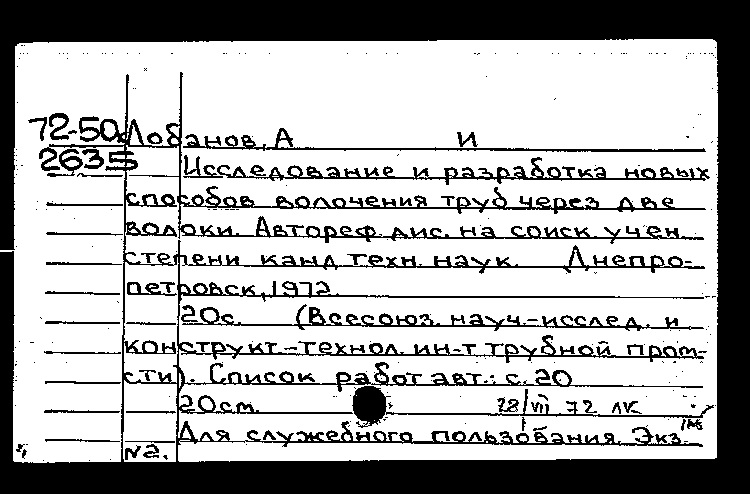 72-50 Лобанов, А И
2635 Исследование и разработка новых
способов волочения труб через две
волоки. Автореф. дис. на соиск учен.
степени канд техн. наук. Днепро-
петровск, 1972.
20с. (Всесоюз. науч-исслед. и
конструкт.-технол. ин-т трубной пром-
сти). Список работ авт.: с. 20
20см. 28/VII 72
Для служебного пользования. Экз.
№2.